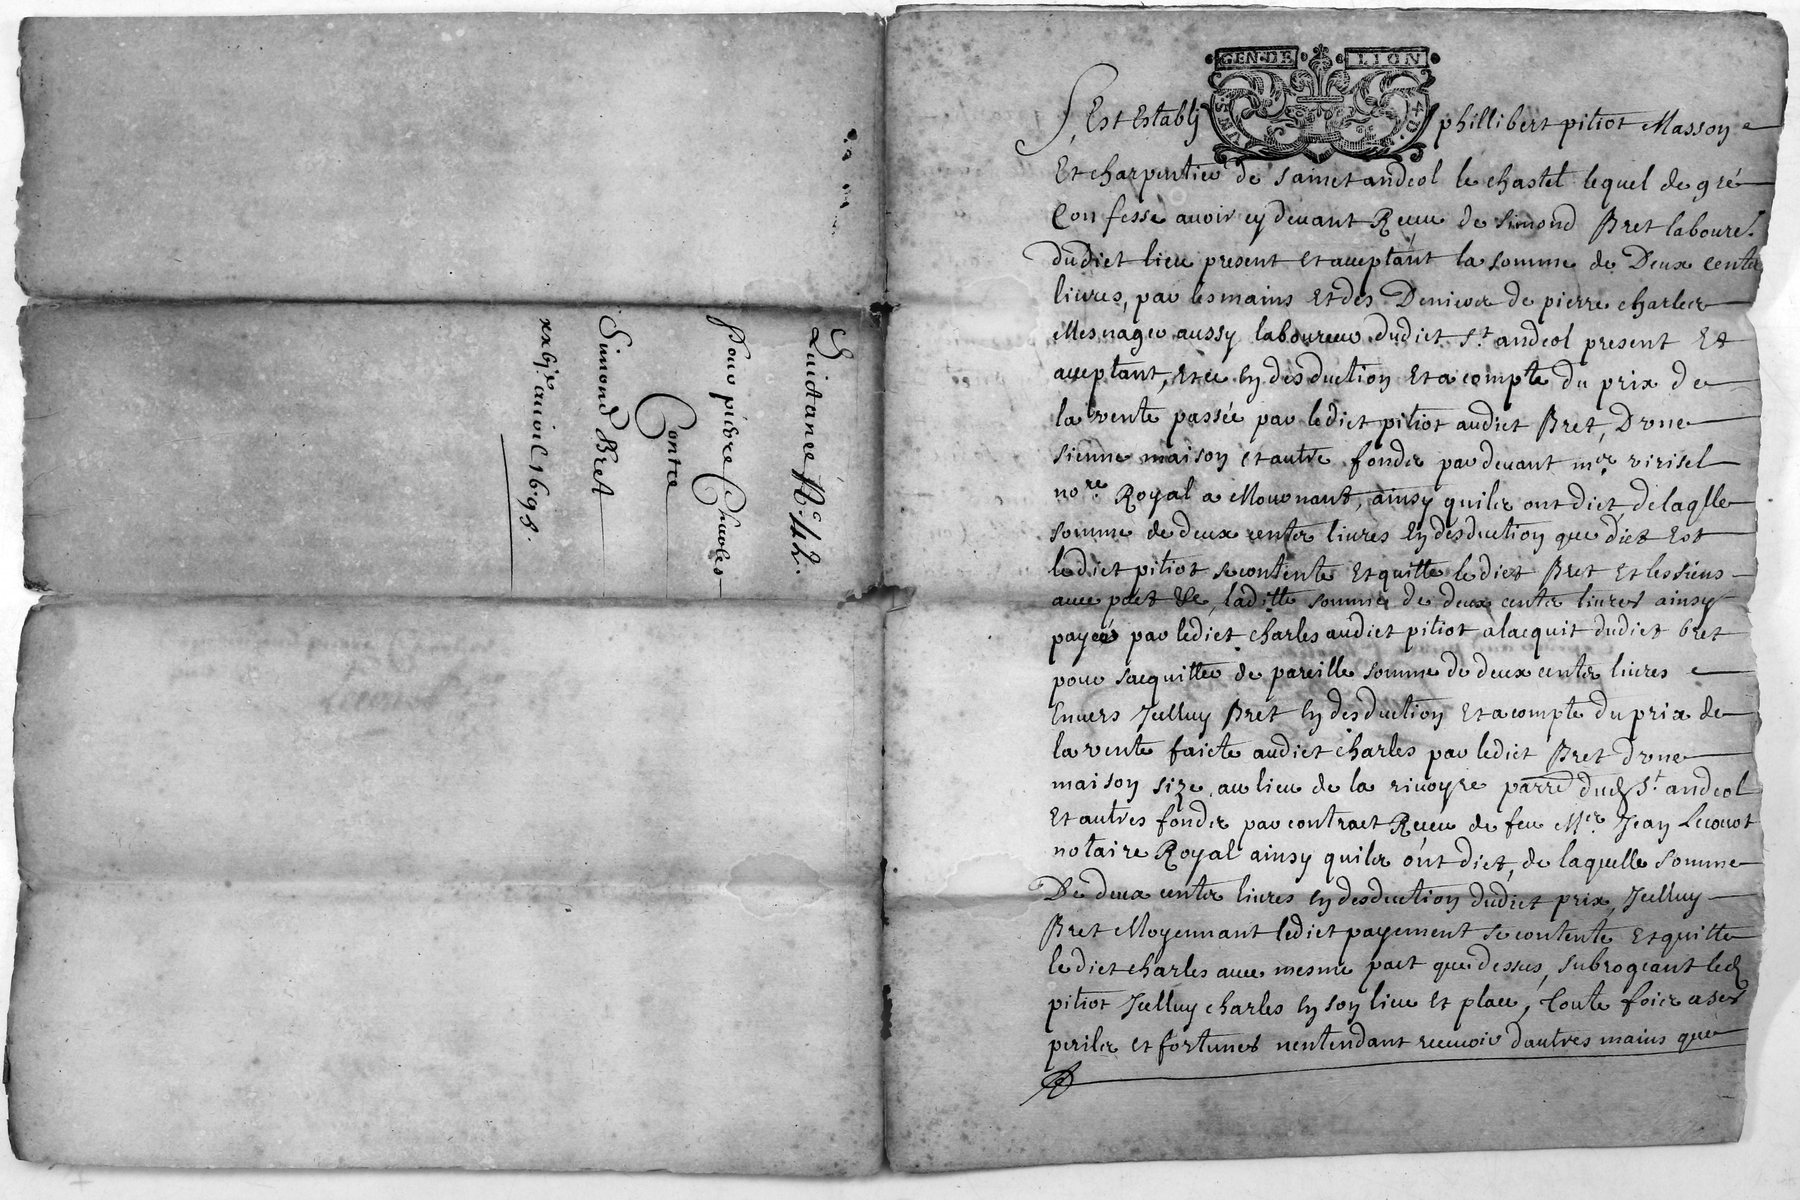 Quictance ℔ c 42.
Pour pierre Charles
Contre
Simond Bret
xxbjᵉ avril 1695.
GEN·DE LION
S'Est Establj phillibert pitiot Masson
Et charpentier de sainct andeol le chastel lequel de gré
Confesse avoir cy devant Receu de simond Bret laboure.
dudict lieu present et acceptant la somme de Deux centz
livres, par les mains Et des Deniers de pierre charles
Mesnager aussy laboureur dudict St andeol present Et
acceptant, et ce En desduction Et a compte du prix de
la vente passée par ledict pitiot audict Bret, D'vne
sienne maison et autre fonds par devant mer virisel
nore Royal a Mournant, ainsy quils ont dict, de laqlle
somme de deux centz livres En desduction que dict Est
ledict pitiot se contente Et quitte ledict Bret Et les siens
avec pact &c, laditte somme de deux centz livres ainsy
payeé par ledict charles audict pitiot a lacquit dudict bret
pour sacquitter de pareille somme de deux centz livres
Envers Jcelluy Bret En desduction Et a compte du prix de
la vente faicte audict charles par ledict Bret d'vne
maison size, au lieu de la rivoyre parre dud St andeol
Et autres fonds par contract Receu de feu Mer Jean
notaire Royal ainsy quils ont dict, de laquelle somme
De deux centz livres En desduction dudict prix, Jcelluy
Bret Moyennant ledict payement se contente Et quitte
ledict charles avec mesme pact que dessus, subrogeant led
pitiot Jcelluy charles En son lieu Et place, toute fois a ses
perils et fortunes n'entendant recevoir d'autres mains que